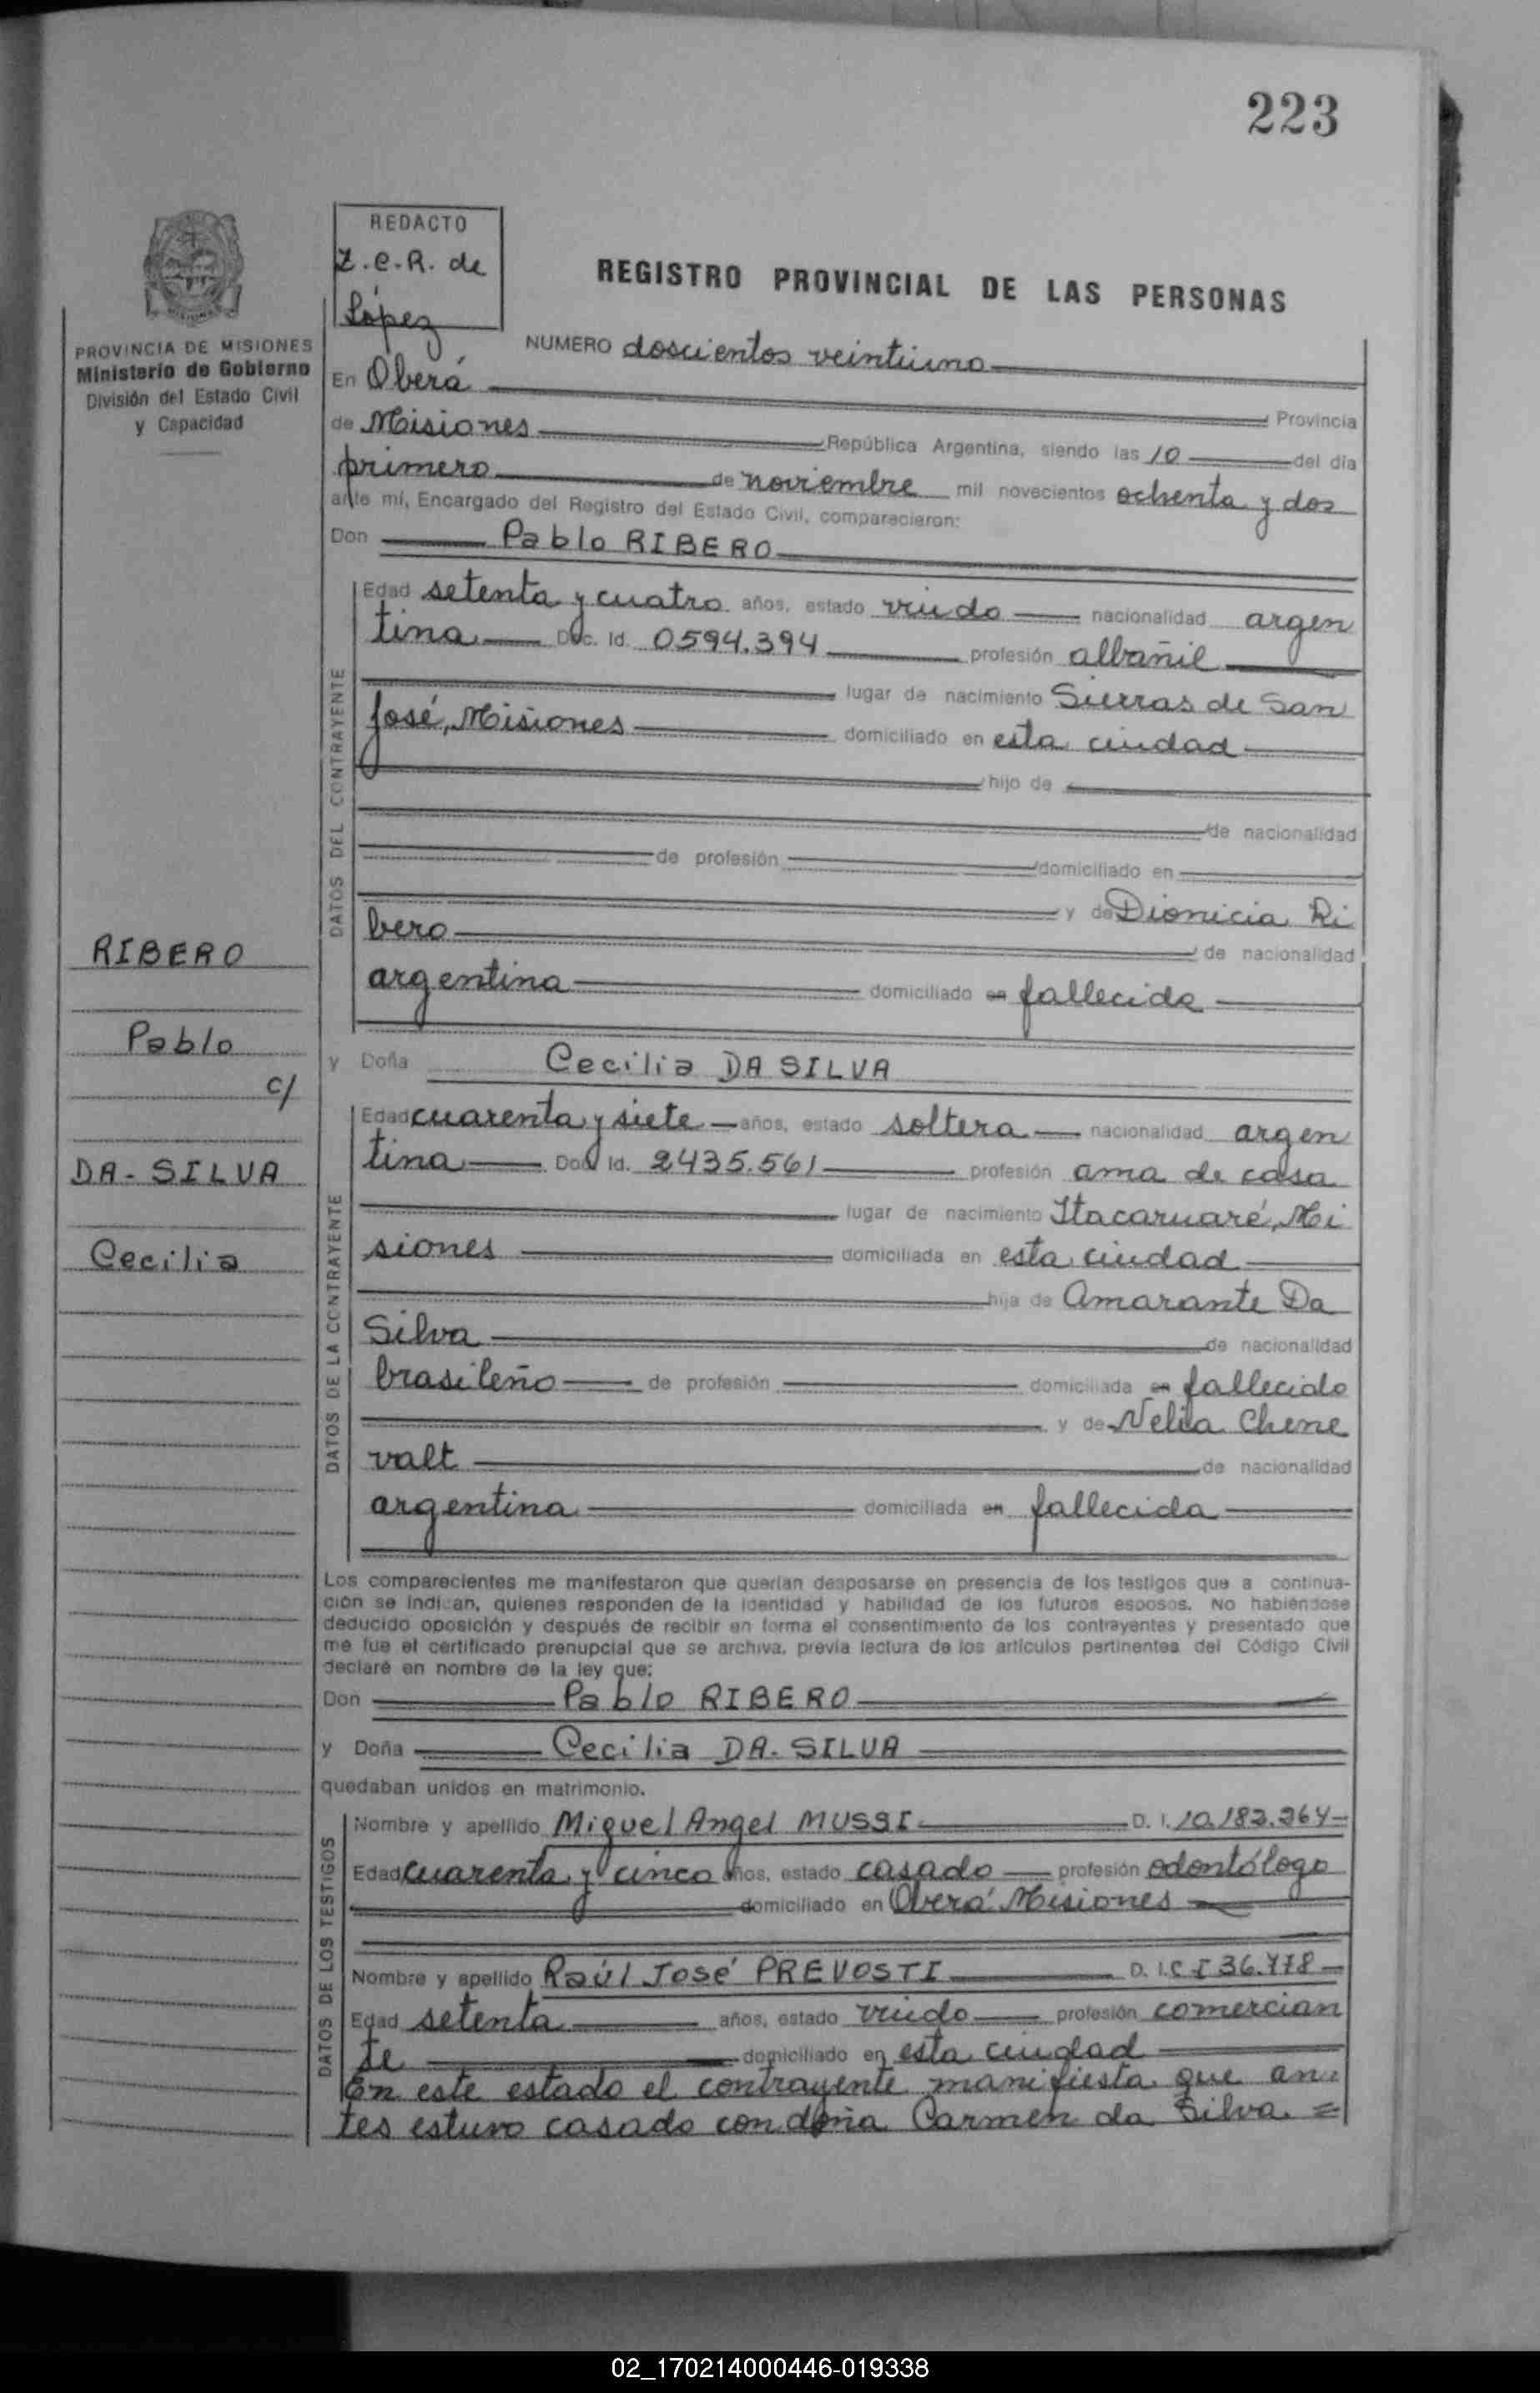 223
REDACTO
Z.C.R. de
López
REGISTRO PROVINCIAL DE LAS PERSONAS
PROVINCIA DE MISIONES
Ministerio de Gobierno
División del Estado Civil
y Capacidad
NUMERO doscientos veintiuno
En Oberá
Provincia
de Misiones República Argentina, siendo las 10 del día
primero de noviembre mil novecientos ochenta y dos
ante mí, Encargado del Registro del Estado Civil, comparecieron:
Don Pablo RIBERO
DATOS DEL CONTRAYENTE
Edad setenta y cuatro años, estado viudo nacionalidad argen
tina Doc. Id. 0594.394 profesión albañil
lugar de nacimiento Sierras de San
José, Misiones domiciliado en esta ciudad
hijo de
de nacionalidad
de profesión domiciliado en
y de Dionicia Ri
bero de nacionalidad
argentina domiciliado en fallecida
RIBERO
Pablo
c/
DA-SILVA
Cecilia
y Doña Cecilia DA SILVA
DATOS DE LA CONTRAYENTE
Edad cuarenta y siete años, estado soltera nacionalidad argen
tina Doc Id. 2435.561 profesión ama de casa
lugar de nacimiento Itacaruaré, Mi
siones domiciliada en esta ciudad
hija de Amarante Da
Silva de nacionalidad
brasileño de profesión domiciliada en fallecido
y de Nelia Chene
valt de nacionalidad
argentina domiciliada en fallecida
Los comparecientes me manifestaron que querían desposarse en presencia de los testigos que a continua-
ción se indican, quienes responden de la identidad y habilidad de los futuros esposos. No habiéndose
deducido oposición y después de recibir en forma el consentimiento de los contrayentes y presentado que
me fue el certificado prenupcial que se archiva, previa lectura de los artículos pertinentes del Código Civil
declaré en nombre de la ley que:
Don Pablo RIBERO
y Doña Cecilia DA-SILVA
quedaban unidos en matrimonio.
DATOS DE LOS TESTIGOS
Nombre y apellido Miguel Angel MUSSI D. I. 10.182.264
Edad cuarenta y cinco años, estado casado profesión odontólogo
domiciliado en Oberá Misiones
Nombre y apellido Raúl José PREVOSTI D. I. C I 36.778
Edad setenta años, estado viudo profesión comercian
te domiciliado en esta ciudad
En este estado el contrayente manifiesta que an-
tes estuvo casado con doña Carmen da Silva =
02_170214000446-019338